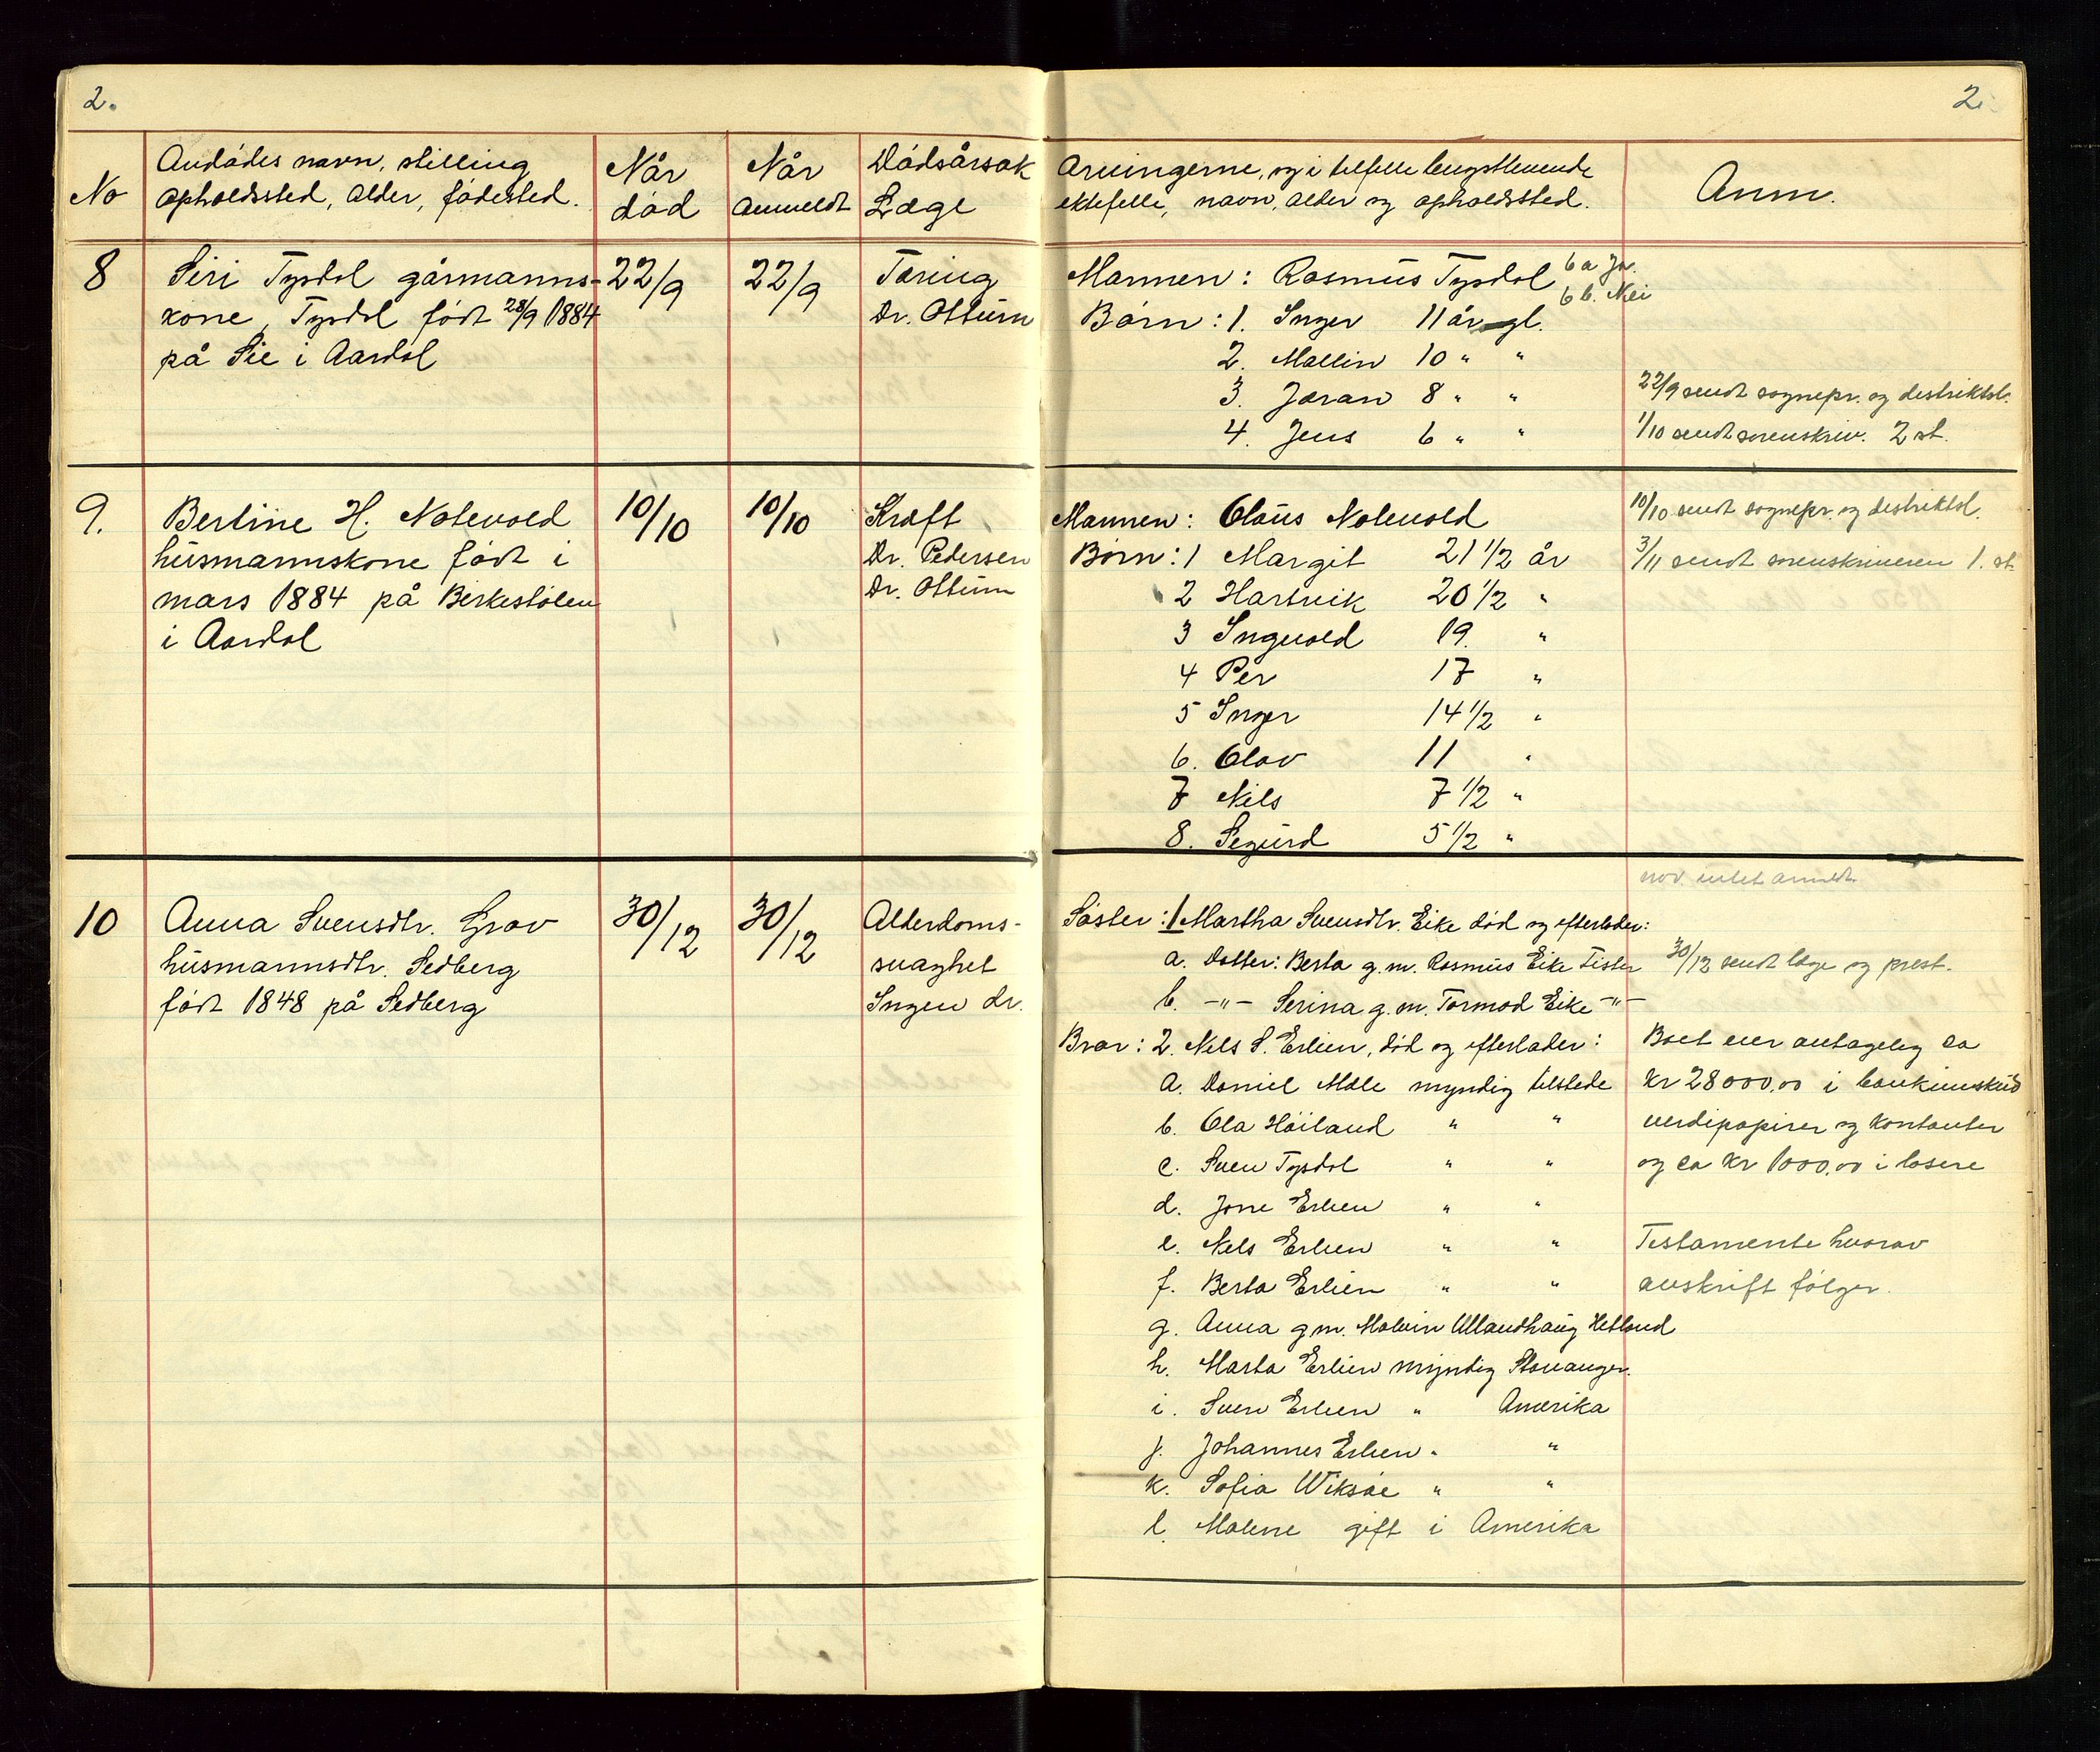 2.
No
Avdødes navn, stilling
opholdssted, alder, fødested.
Når
død
Når
anmeldt
Dødsårsak
Læge
8
Siri Tysdal gårmanns-
kone, Tysdal født 28/9 1884
på Sie i Aardal
22/9
22/9
Tæring
Dr. Ottum
9.
Bertine H. Nolevold
husmannskone født i
mars 1884 på Birkestølen
i Aardal
10/10
10/10
Kræft
Dr. Pedersen
Dr. Ottum
10
Anna Svensdtr. Grav
husmannsdtr. Sedberg
født 1848 på Sedberg
30/12
30/12
Alderdoms-
svaghet
Ingen dr.
2.
Arvingerne, og i tilfelle lengstlevende
ektefelle, navn, alder og opholdssted.
Anm.
Mannen: Rasmus Tysdal 6 a Ja.
6 b. Nei
Børn: 1. Inger 11 år gl.
2. Mallin 10 " "
3. Jøran 8 " "
22/9 sendt sognepr. og distriktsl.
4. Jens 6 " "
1/10 sendt sorenskriv. 2 st.
Mannen: Olaus Nolevold
10/10 sendt sognepr. og distriktsl.
Børn: 1 Margit 21 1/2 år
3/11 sendt sorenskriveren 1. st.
2 Hartvik 20 1/2 "
3 Ingvald 19. "
4 Per 17 "
5 Inger 14 1/2 "
6. Olav 11 "
7 Nils 7 1/2 "
8. Sigurd 5 1/2 "
nov. intet anmeldt.
Søster: 1 Martha Svensdtr. Eike død og efterlader:
a. Datter: Berta g.m. Rasmus Eike Fister
30/12 sendt læge og prest.
b. -"- Serina g.m. Tormod Eike -"-
Bror: 2. Nils S. Erlien, død og efterlader:
Boet eier antagelig ca
a. Daniel Mæle myndig tilstede
kr 28000,00 i bankinnskud
b. Ola Høiland " "
verdipapirer og kontanter
c. Sven Tysdal " "
og ca kr 1000,00 i løsøre
d. Jone Erlien " "
e. Nils Erlien " "
Testamente hvorav
f. Berta Erlien " "
avskrift følger.
g. Anna g.m. Malvin Ullandhaug Hetland
h. Marta Erlien myndig Stavanger.
i. Sven Erlien " Amerika
j. Johannes Erlien " "
k. Sofia Wiksøe " "
l. Malene gift i Amerika